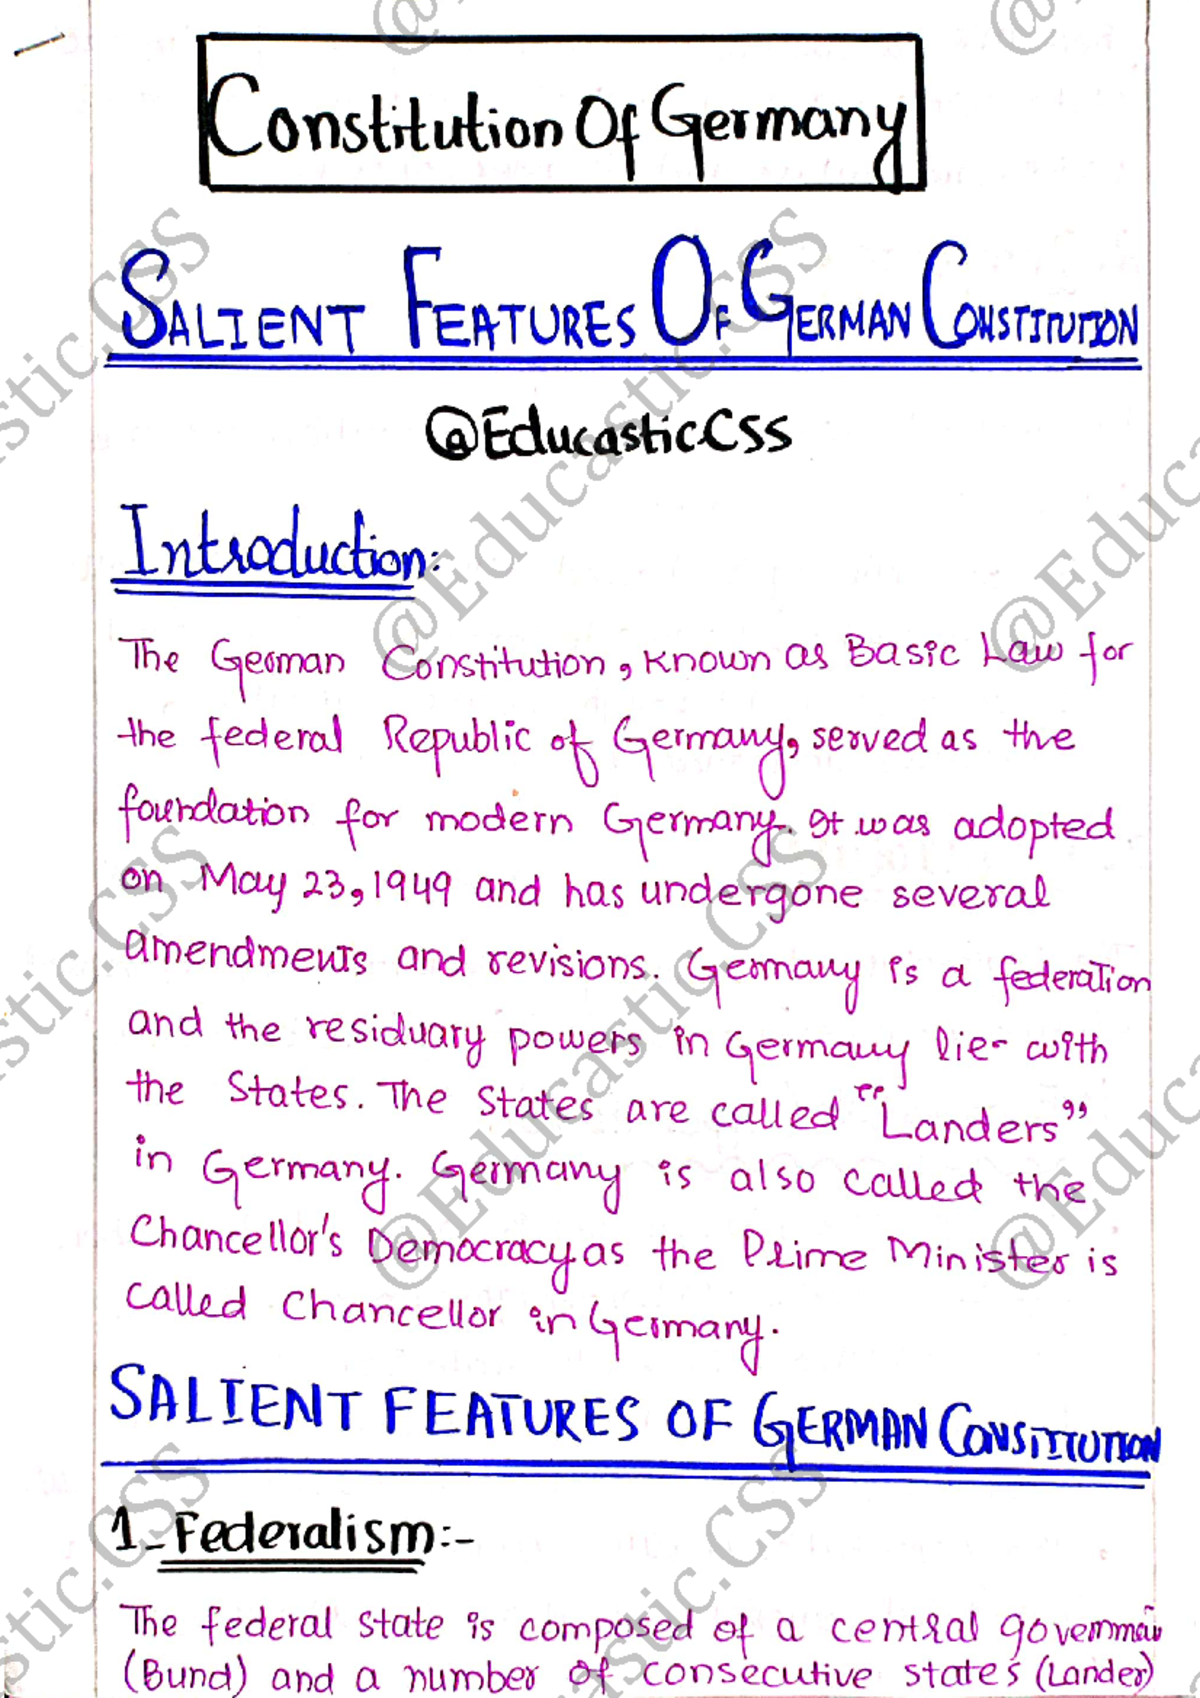 Constitution Of Germany
SALIENT FEATURES OF GERMAN CONSTITUTION
@Educastic.CSS
Introduction:
The German Constitution, known as Basic Law for
the federal Republic of Germany, served as the
foundation for modern Germany. It was adopted
on May 23, 1949 and has undergone several
amendments and revisions. Germany is a federation
and the residuary powers in Germany lie with
the States. The States are called "Landers"
in Germany. Germany is also called the
Chancellor's Democracy as the Prime Minister is
called Chancellor in Germany.
SALIENT FEATURES OF GERMAN CONSTITUTION
1- Federalism:-
The federal state is composed of a central government
(Bund) and a number of consecutive states (Lander)
@Educastic.CSS